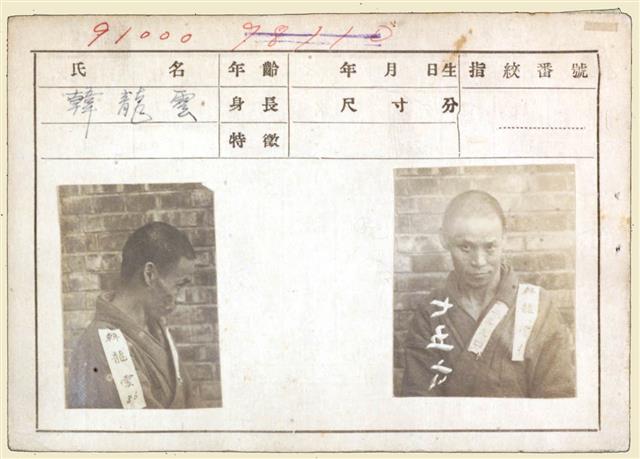 91000
氏名 年齡 年月日生 指紋番號
韓龍雲 身長 尺寸分
特徵
韓龍雲
韓龍雲